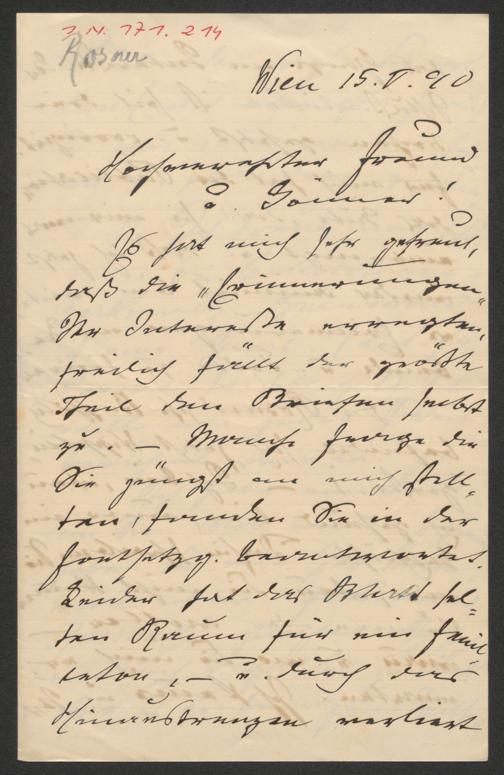 I. N. 171.214
Rosner
Wien 15. V. 90
Hochverehrter Freund
u. Gönner!
Es hat mich sehr gefreut,
daß die „Erinnerungen"
Ihr Interesse erregten,
freilich fällt der größte
Theil den Briefen selbst
zu. – Manche Frage die
Sie jüngst an mich stell-
ten, fanden Sie in der
Fortsetzg. beantwortet.
Leider hat das Blatt sel-
ten Raum für ein Feuil-
leton, – u. durch das
Hinausdrängen verliert